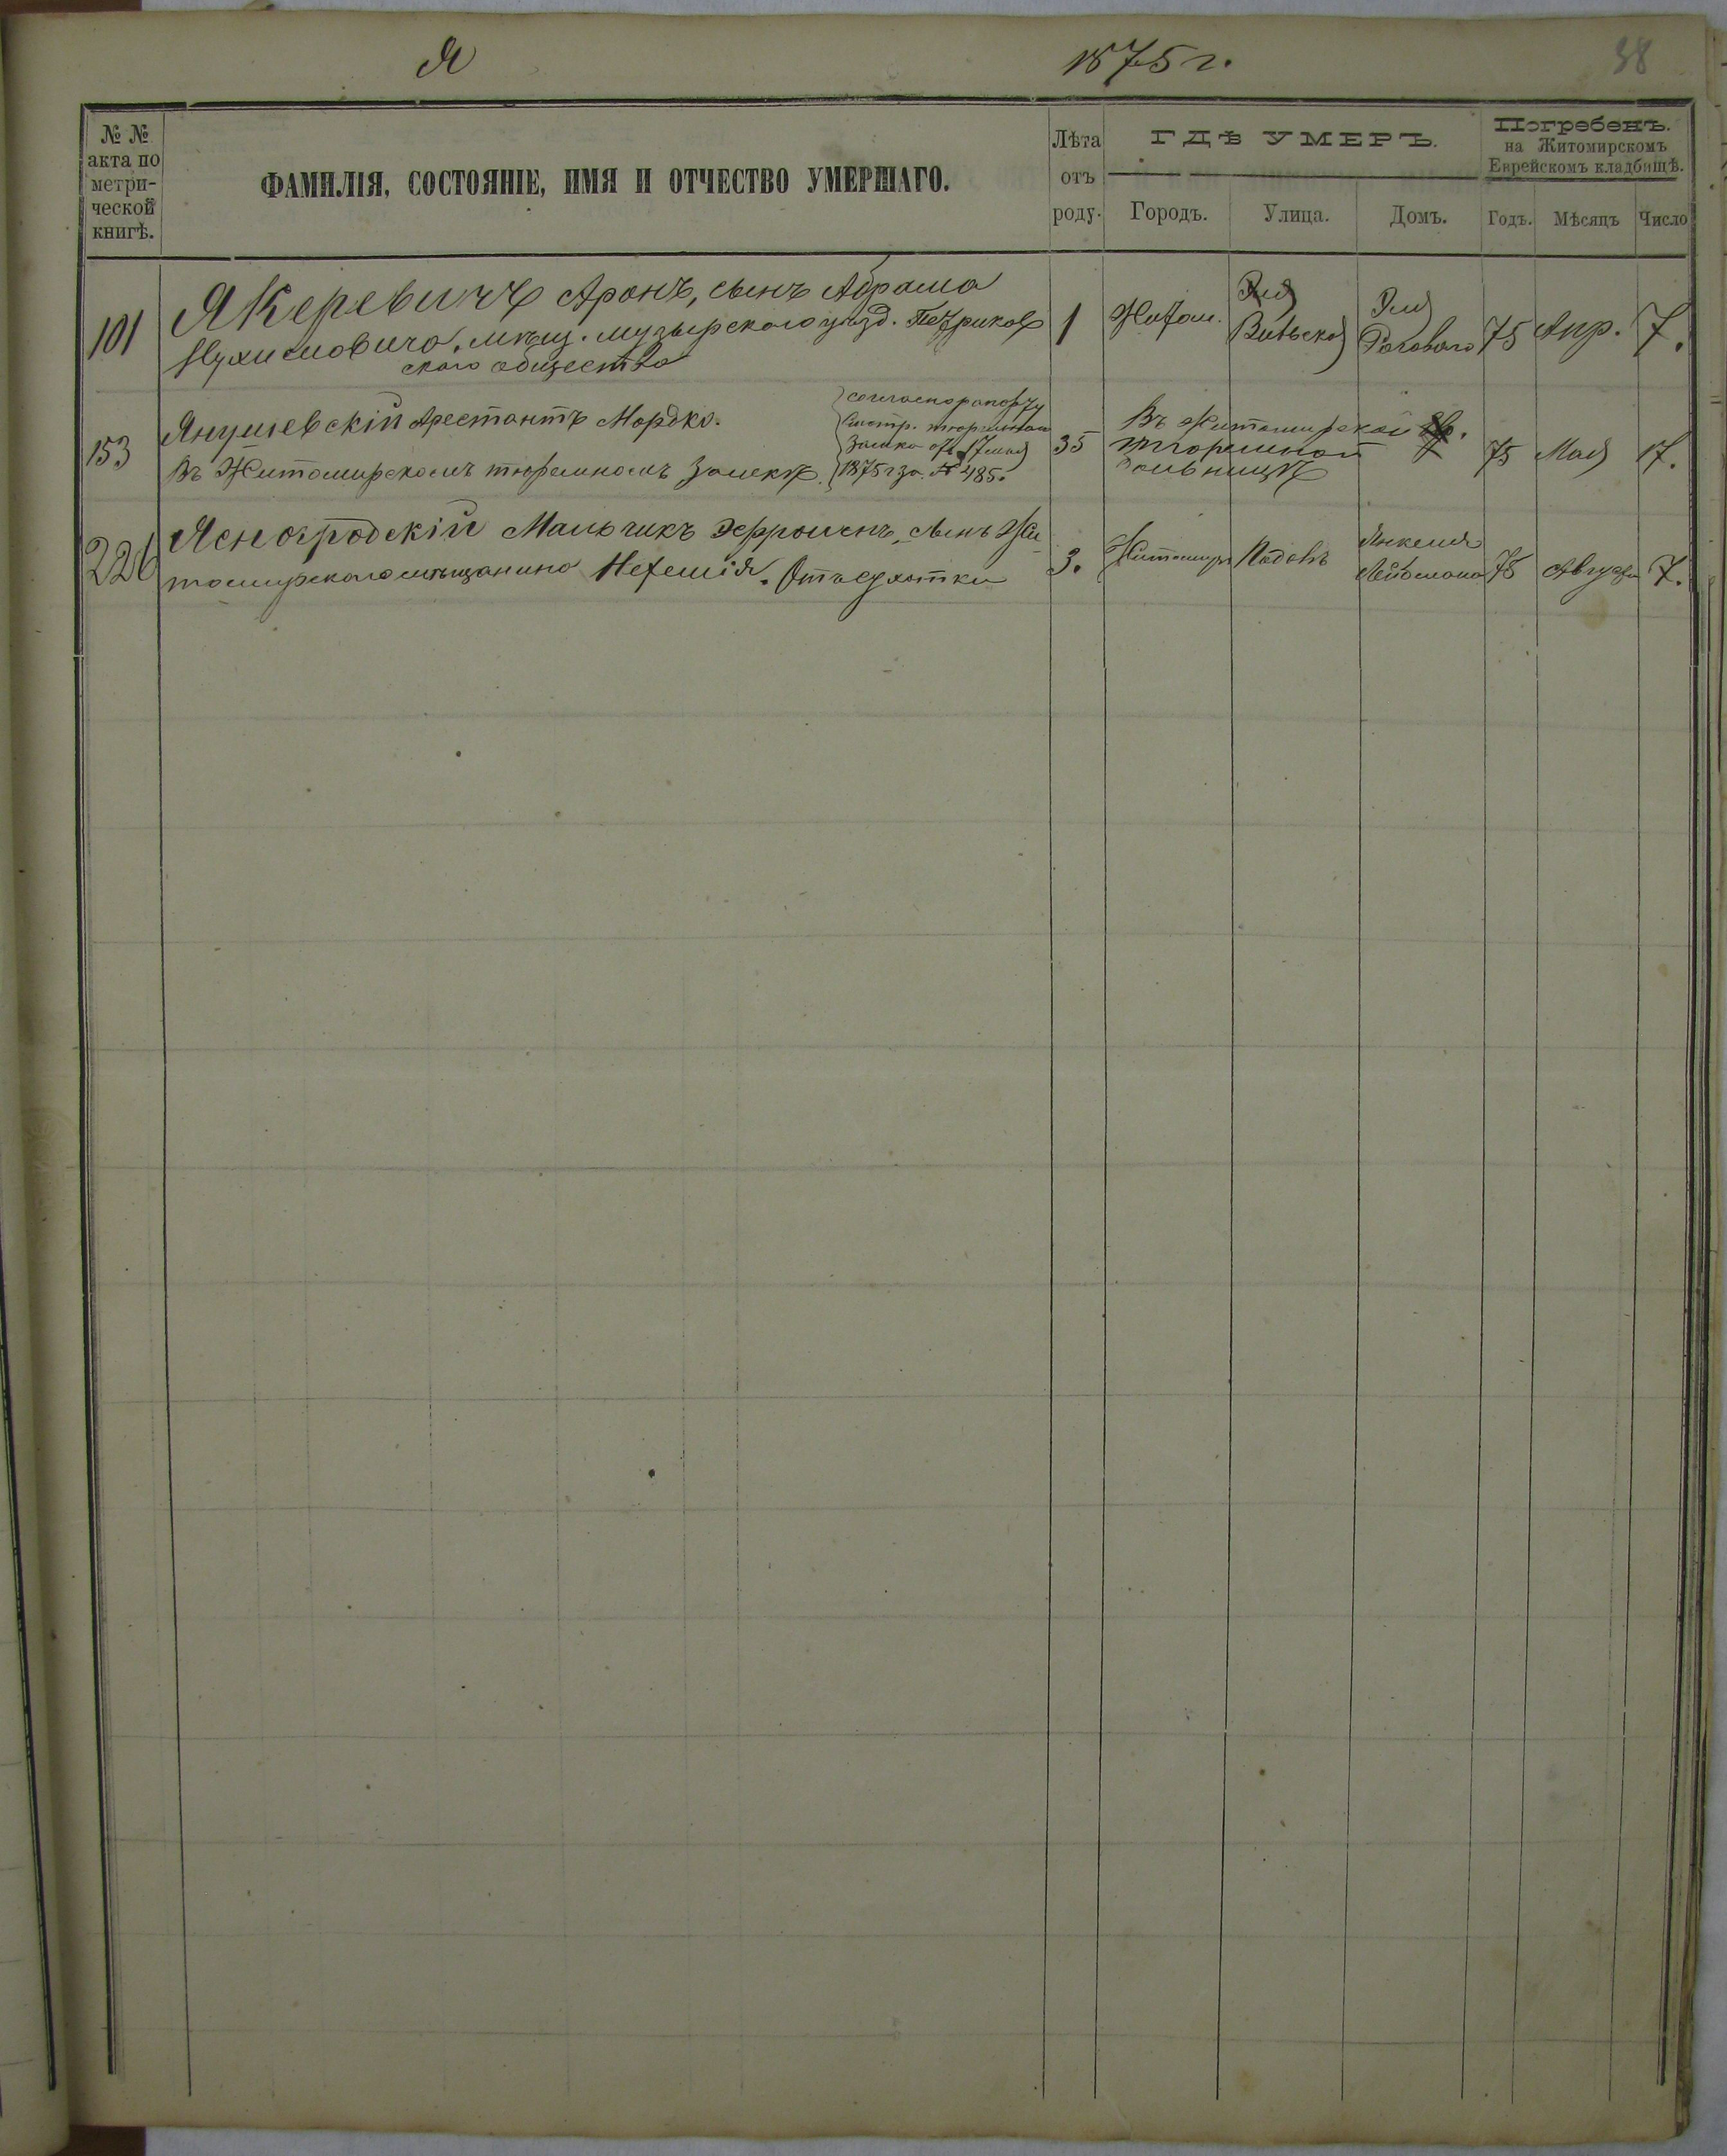 Я 1875 г. 38
№ №
акта по
метри-
ческой
книгѣ.
ФАМИЛІЯ, СОСТОЯНІЕ, ИМЯ И ОТЧЕСТВО УМЕРШАГО.
Лѣта
отъ
роду.
ГДѢ УМЕРЪ.
Городъ. Улица. Домъ.
Погребенъ.
на Житомирскомъ
Еврейскомъ кладбищѣ.
Годъ. Мѣсяцъ Число
101 Якеревичъ Аронъ, сынъ Абрама
мѣщ. музырского уѣзд. Петриков
ского общества
1 Житом. Вильская Рогового 75 Апр. 7.
153 Янушевскій Арестантъ Мордко.
Въ Житомирскомъ тюремномъ замкѣ.
согласно рапорту
Смотр. тюремнаго
Замка от 17 мая
1875 г за № 485.
35 Въ Житомирской
тюремной
больницѣ
75 Мая 17.
226 Ясногродскій Мальчикъ Эфроимъ, сынъ Жи
томирского мѣщанина Нехемія. Отъ сухотки
3. Житомиръ Подолъ Янкеля
75 Августа 7.